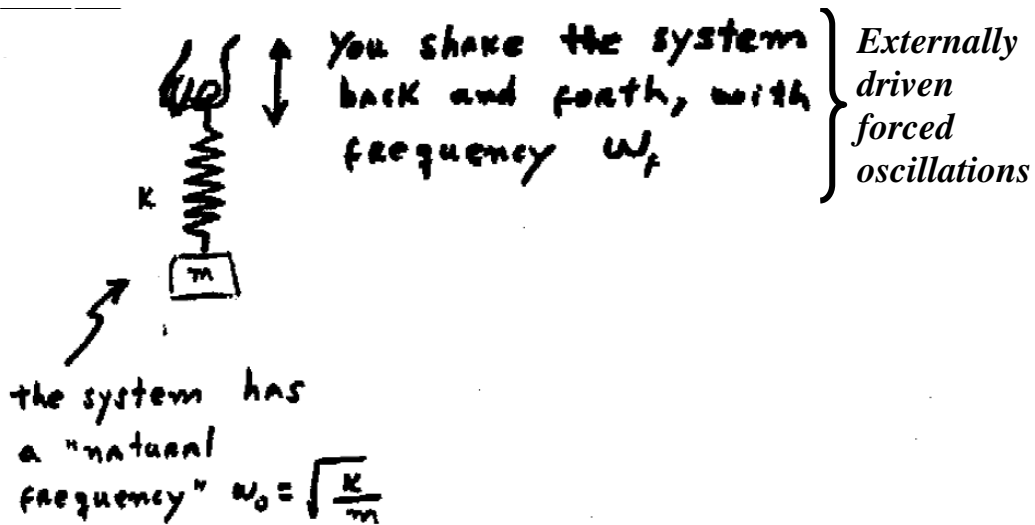 You shake the system
back and forth, with
frequency ω_f
Externally
driven
forced
oscillations
K
m
the system has
a "natural
frequency" ω₀ = √(K/m)